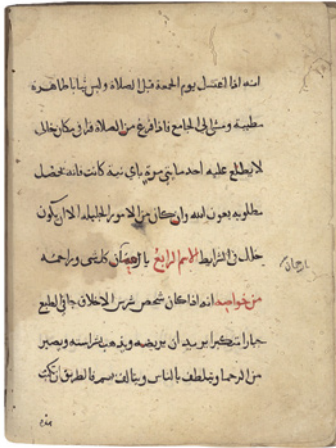 انه اذا اغتسل يوم الجمعة قبل الصلاة ولبس ثيابا طاهرة
مطيبة ومشى الى الجامع فاذا فرغ من الصلاة قرا فى مكان خال
لا يطلع عليه احد مايتى مرة باى نية كانت فانه يحصل
مطلوبه بعون الله وان كان من الامور الجليله الا ان يكون
خلل فى الشرايط الاسم الرابع يا رحمان كل شى وراحمه
يا رحمان
من خواصه انه اذا كان شخص شرس الاخلاق جافى الطبع
جبارا متكبرا يريد ان يريضه ويذهب شراسته ويصير
من الرحما ويتلطف بالناس ويتالف معهم فالطريق ان يكتب